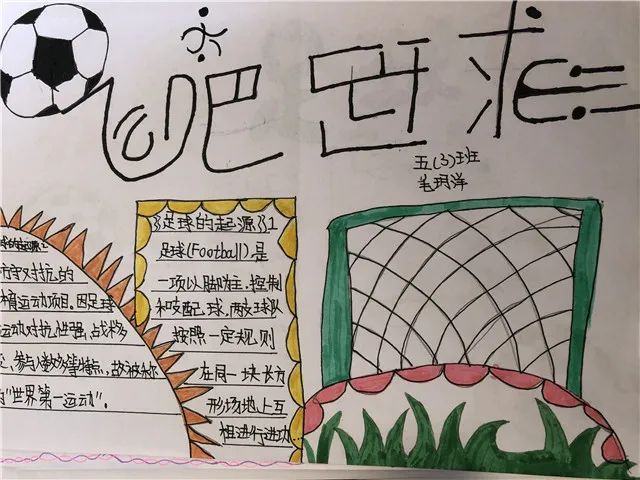 吧 求
五(3)班
毛玥洋
足球的起源1
足球(Football)是
一项以脚为主,控制
和支配球,两支球队
按照一定规则
在同一块长方
形场地上互
相进行进攻
球的起源2
守对抗的
运动项目。因足球
运动对抗性强、战术多
参与人数多等特点,故被称
"世界第一运动"。